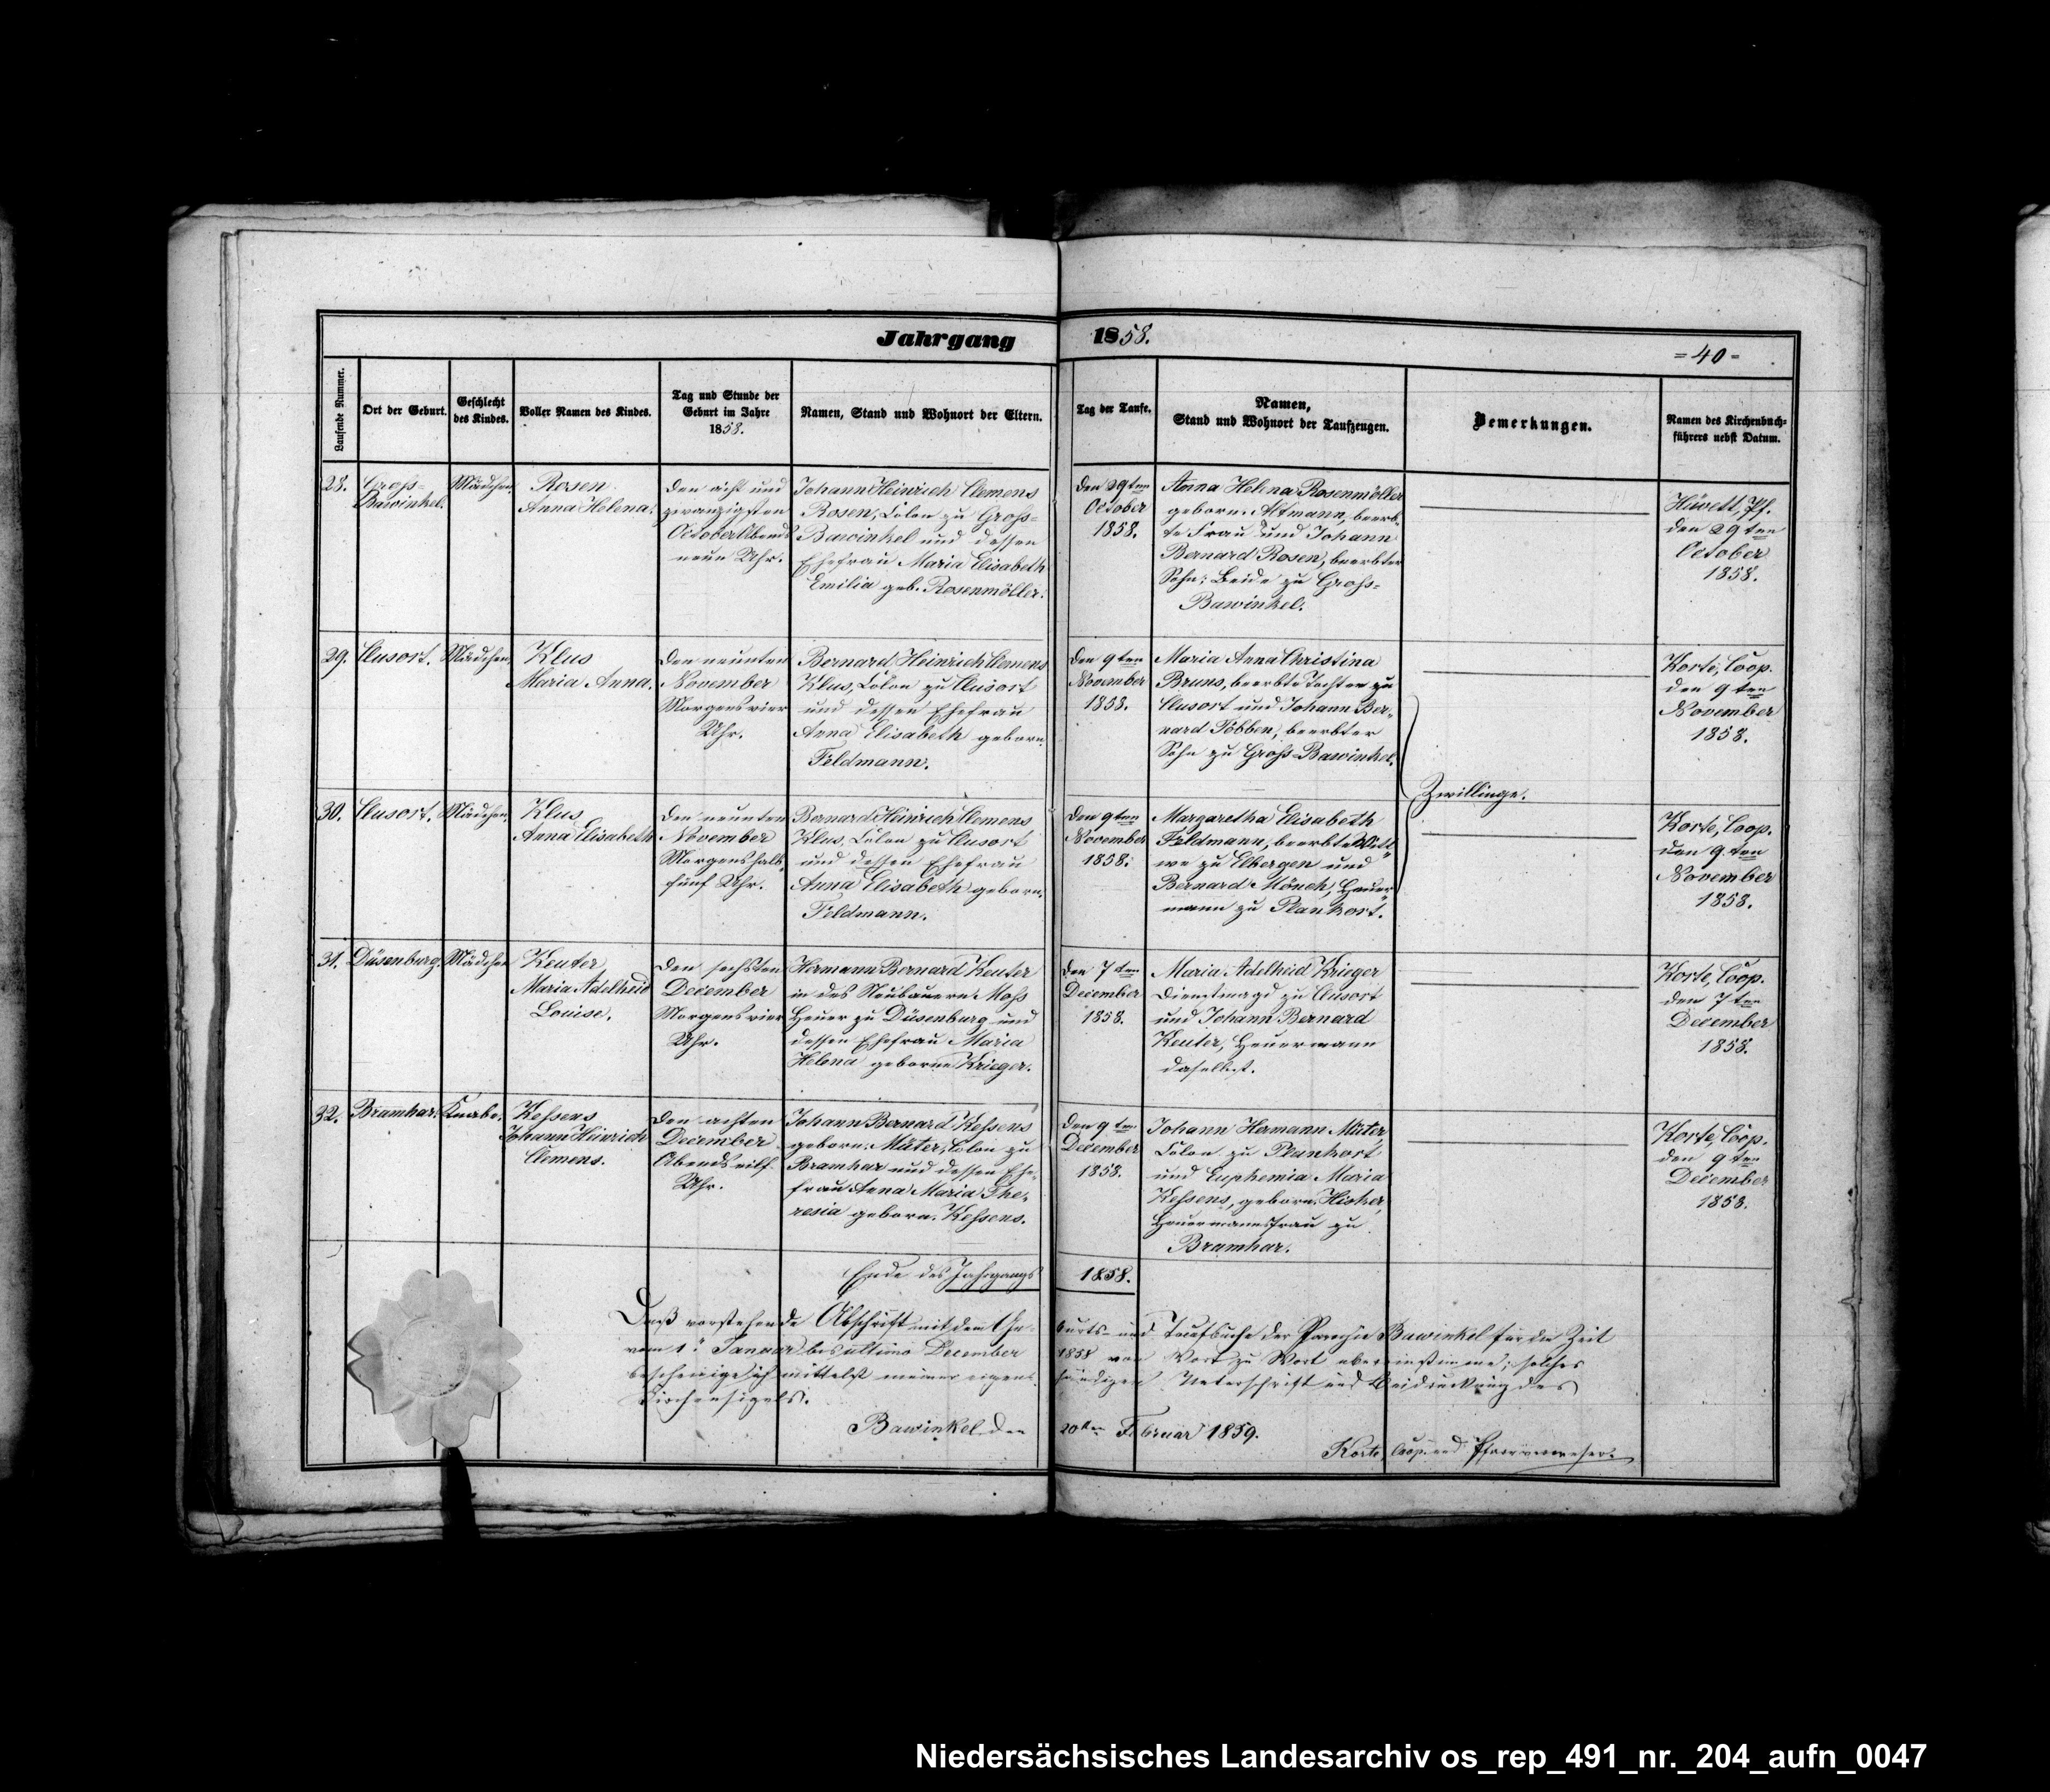 Jahrgang 1858.
=40=
Laufende Nummer.
Ort der Geburt.
Geschlecht
des Kindes.
Voller Namen des Kindes.
Tag und Stunde der
Geburt im Jahre
1858.
Namen, Stand und Wohnort der Eltern.
Tag der Taufe.
Namen,
Stand und Wohnort der Taufzeugen.
Bemerkungen.
Namen des Kirchenbuch-
führers nebst Datum.
28.
Gross=
Bawinkel.
Mädchen.
Rosen
Anna Helena.
Den acht und
zwanzigsten
October Abends
neun Uhr.
Johann Heinrich Clemens
Rosen, Colon zu Gross=
Bawinkel und dessen
Ehefrau Maria Elisabeth
Emilia geb. Rosenmöller.
Den 29ten
October
1858.
Anna Helena Rosenmöller
geborn. Altmann, beerb-
te Frau und Johann
Bernard Rosen, beerbter
Sohn; Beide zu Gross=
Bawinkel.
Hüvett, Pf.
den 29ten
October
1858.
29.
Clusort.
Mädchen.
Klus
Maria Anna.
Den neunten
November
Morgens vier
Uhr.
Bernard Heinrich Clemens
Klus, Colon zu Clusort
und dessen Ehefrau
Anna Elisabeth geborn.
Feldmann.
Den 9ten
November
1858.
Maria Anna Christina
Bruns, beerbte Tochter zu
Clusort und Johann Ber-
nard Többen, beerbter
Sohn zu Gross-Bawinkel.
Korte, Coop.
den 9ten
November
1858.
Zwillinge.
30.
Clusort.
Mädchen.
Klus
Anna Elisabeth
Den neunten
November
Morgens halb
fünf Uhr.
Bernard Heinrich Clemens
Klus, Colon zu Clusort
und dessen Ehefrau
Anna Elisabeth geborn.
Feldmann.
Den 9ten
November
1858.
Margaretha Elisabeth
Feldmann, beerbte Witt-
we zu Elbergen und
Bernard Mönch, Heuer-
mann zu Plankort.
Korte, Coop.
den 9ten
November
1858.
31.
Düsenburg.
Mädchen
Keuter
Maria Adelheid
Louise.
Den sechsten
December
Morgens vier
Uhr.
Hermann Bernard Keuter
in des Neubauern Moss
Heuer zu Düsenburg und
dessen Ehefrau Maria
Helena geborne Krieger.
Den 7ten
December
1858.
Maria Adelheid Krieger
Dienstmagd zu Clusort
und Johann Bernard
Keuter, Heuermann
daselbst.
Korte, Coop.
den 7ten
December
1858.
32.
Bramhar.
Knabe.
Kessens
Johann Heinrich
Clemens.
Den achten
December
Abends eilf
Uhr.
Johann Bernard Kessens
geborn. Müter, Colon zu
Bramhar und dessen Ehe-
frau Anna Maria The-
resia geborn. Kessens.
Den 9ten
December
1858.
Johann Hermann Müter,
Colon zu Plankort
und Euphemia Maria
Kessens, geborn. Hisker,
Heuermannsfrau zu
Bramhar.
Korte, Coop.
den 9ten
December
1858.
Ende des Jahrgangs 1858.
Daß vorstehende Abschrift mit dem Ge- burts- und Taufbuche der Parochie Bawinkel für die Zeit
vom 1ⁿ Januar bis ultimo December 1858 von Wort zu Wort übereinstimme; solches
bescheinige ich mittelst meiner eigen- händigen Unterschrift und Beidrückung des
Kirchensigels.
Bawinkel den 20ten Februar 1859.
Korte, Coop. und Pfarrverweser.
Niedersächsisches Landesarchiv os_rep_491_nr._204_aufn_0047